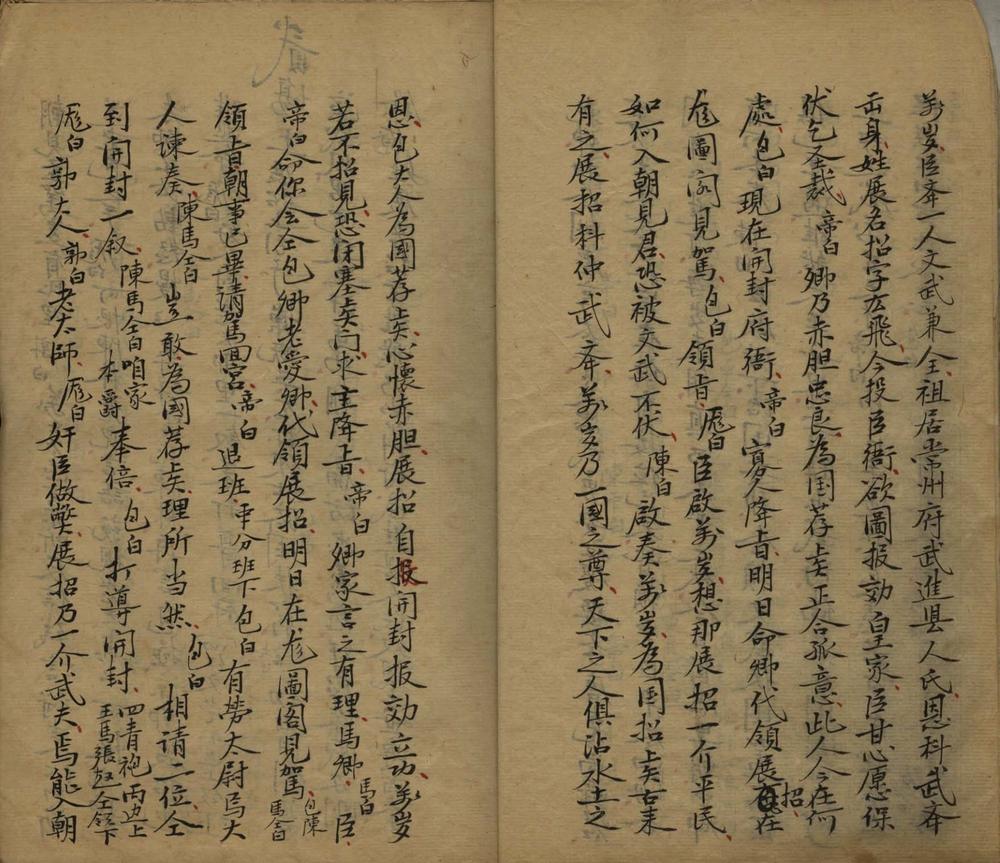 萬岁臣奔一人文武兼全祖居常州府武進县人氏恩科武奔
出身姓展名招字左飛今投臣衙欲圖报効皇家臣甘心愿保
伏乞圣裁帝白卿乃赤胆忠良為国荐上矣正合孤意此人今在何
處包白現在開封府衙帝白寡人降旨明日命卿代領展招在
尨圖阁見駕包白領旨厖白臣啟萬岁想那展招一介平民
如何入朝見君恐被文武不伏陳白啟奏萬岁為国招上矣古来
有之展招科仲武奔萬岁乃一國之尊天下之人俱沾水土之
恩包大人為國荐上矣心懷赤胆展招自报開封报効立功萬岁
若不招見恐闭塞矣门求主降旨帝白卿家言之有理馬卿馬白臣
帝白命你会仝包卿老愛卿代領展招明日在尨圖閣見駕包陳馬仝白
領旨朝事已畢請駕回宮帝白退班平分班下包白有勞太尉馬大
人諫奏陳馬仝白豈敢為國荐上矣理所当然包白相請二位仝
到開封一叙陳馬仝白咱家本爵奉倍包白打導開封四青袍両边上王馬張赵仝領下
厖白郭大人郭白老太師厖白奸臣做弊展招乃一介武夫焉能入朝